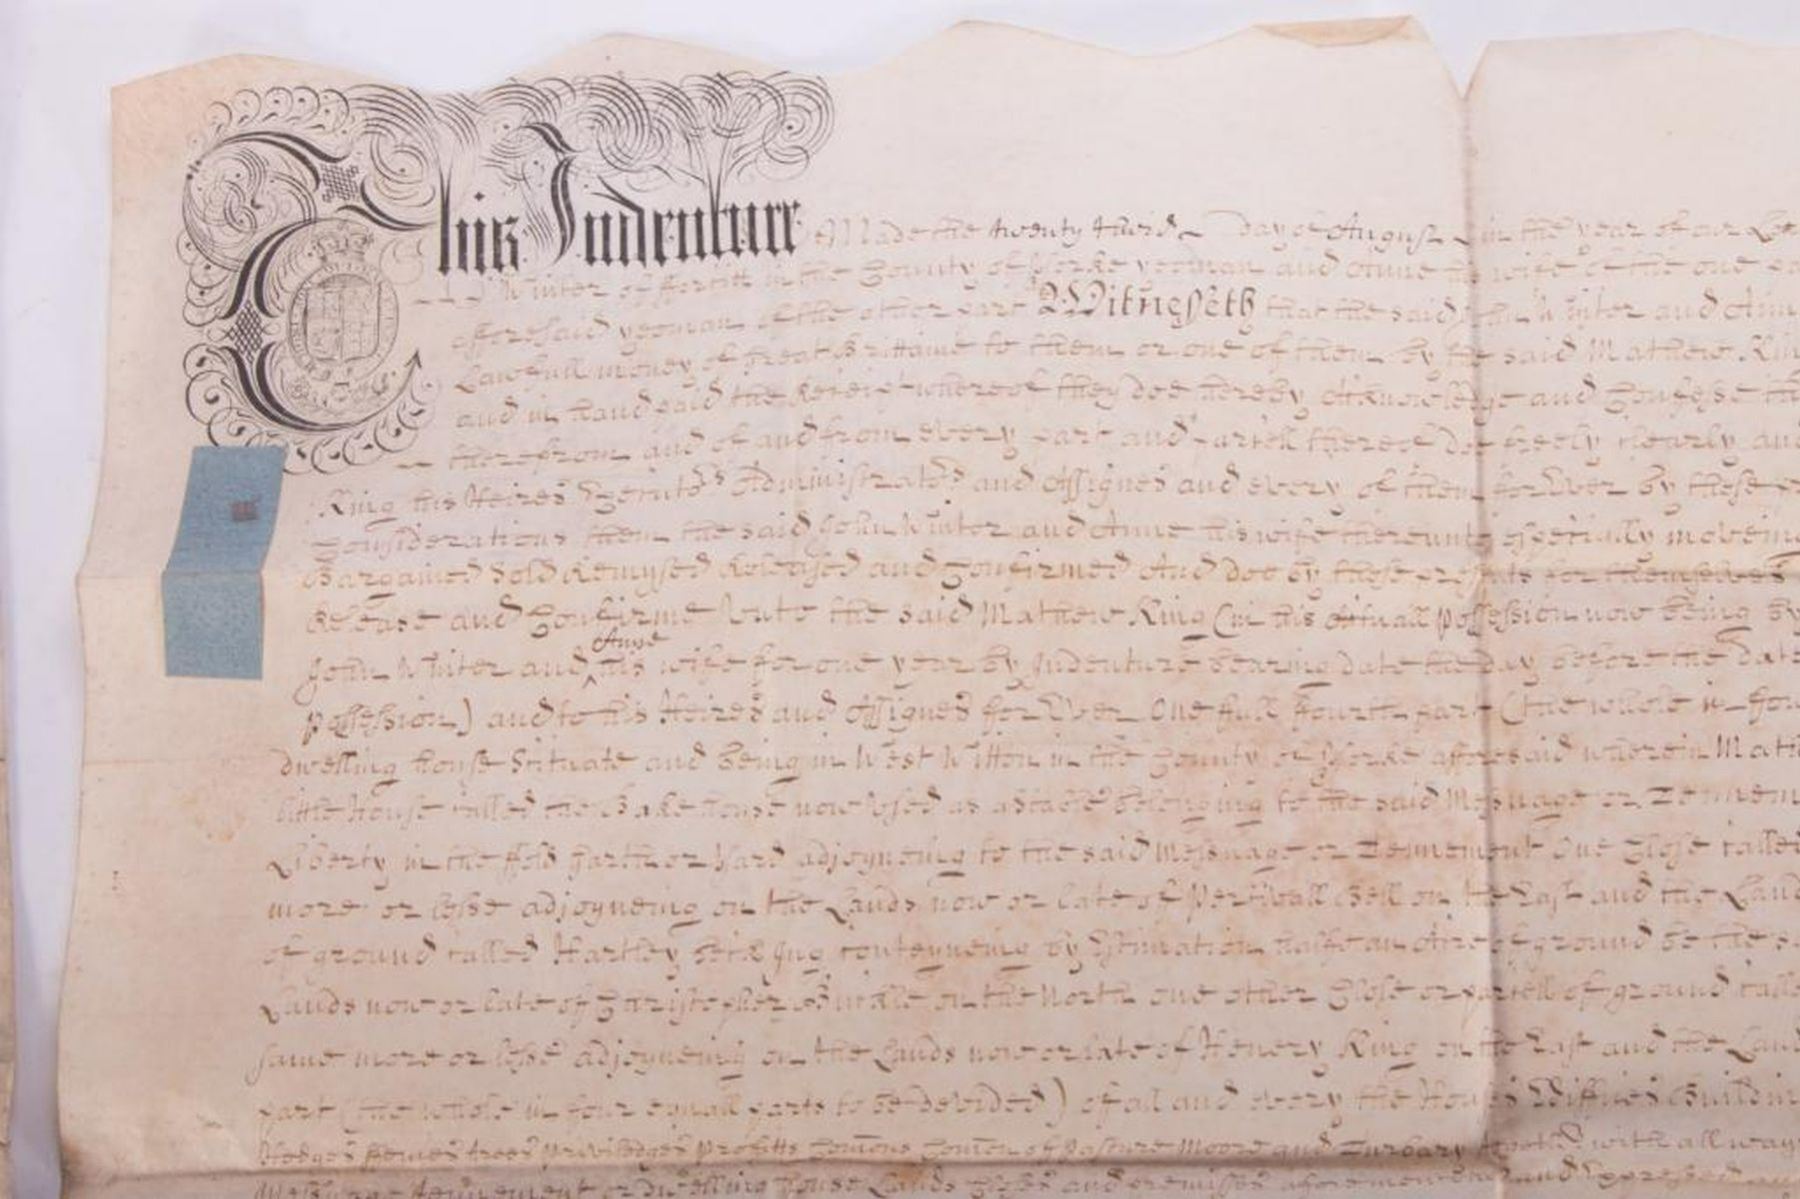 This Indenture Made the twenty third day of August in the year of our
Winter of in the County of Yorke yeoman and Anne his wife of the one
afforesaid yeoman of the other part Witnesseth that the said John Winter and
Lawfull money of Great Brittaine to them or one of them by the said Mathew
and in hand paid the Receipt whereof they doe hereby Acknowledge and Confesse
therefrom and of and from every part and parcell thereof Doe freely clearly and
King his Heires Executors Administrators and Assignes and every of them for Ever by these
Considerations them the said John Winter and Anne his wife thereunto especially moveing
Bargained Sold Remysed Released and Confirmed And doe by these presents for themselves
Release and Confirme Unto the said Mathew King (in his actuall possession now being by
John Winter and Anne his wife for one year by Indenture bearing date the day before the date
possession) and to his Heires and Assignes for Ever One full fourth part (the whole in
dwelling house Scituate and being in West Witton in the County of Yorke afforesaid wherein
little House called the Bakehouse now Used as a stable belonging to the said Messuage or
Liberty in the ffold Garth or Yard adjoyneing to the said Messuage or Tennement One Close called
more or lesse adjoyneing on the Lands now or late of Bell on the East and the
of ground called Hartley Ing conteyneing by Estimation halfe an Acre of ground be the
Lands now or late of Christopher on the North one other Close or parcell of ground
same more or lesse adjoyneing on the Lands now or late of Henery King on the East and the
part (the whole in four equall parts to be devided) of all and every the
Hedges trees priviledges proffitts of Pasture Moore and Turbary with all
Messuage Tennement or dwelling house Lands and premisses aforementioned and